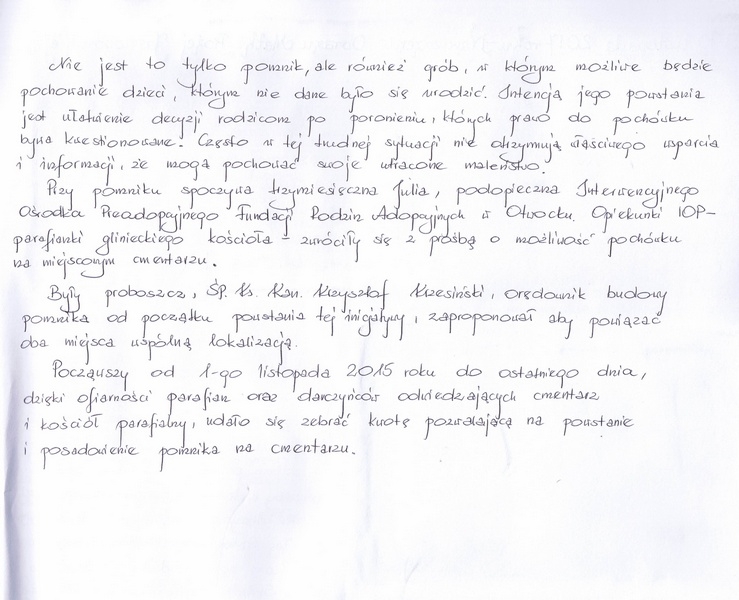 Nie jest to tylko pomnik, ale również grób, w którym możliwe będzie
pochowanie dzieci, którym nie dane było się urodzić. Intencją jego powstania
jest ułatwienie decyzji rodzicom po poronieniu, których prawo do pochówku
bywa kwestionowane. Często w tej trudnej sytuacji nie otrzymują właściwego wsparcia
i informacji, że mogą pochować swoje utracone maleństwo.
Przy pomniku spoczywa trzymiesięczna Julia, podopieczna Interwencyjnego
Ośrodka Preadopcyjnego Fundacji Rodzin Adopcyjnych w Otwocku. Opiekunki IOP-
parafianki glinieckiego kościoła - zwróciły się z prośbą o możliwość pochówku
na miejscowym cmentarzu.
Były proboszcz, Śp. Ks. Kan. Krzysztof Krzesiński, orędownik budowy
pomnika od początku powstania tej inicjatywy, zaproponował aby powiązać
oba miejsca wspólną lokalizacją.
Począwszy od 1-go listopada 2015 roku do ostatniego dnia,
dzięki ofiarności parafian oraz darczyńców odwiedzających cmentarz
i kościół parafialny, udało się zebrać kwotę pozwalającą na powstanie
i posadowienie pomnika na cmentarzu.